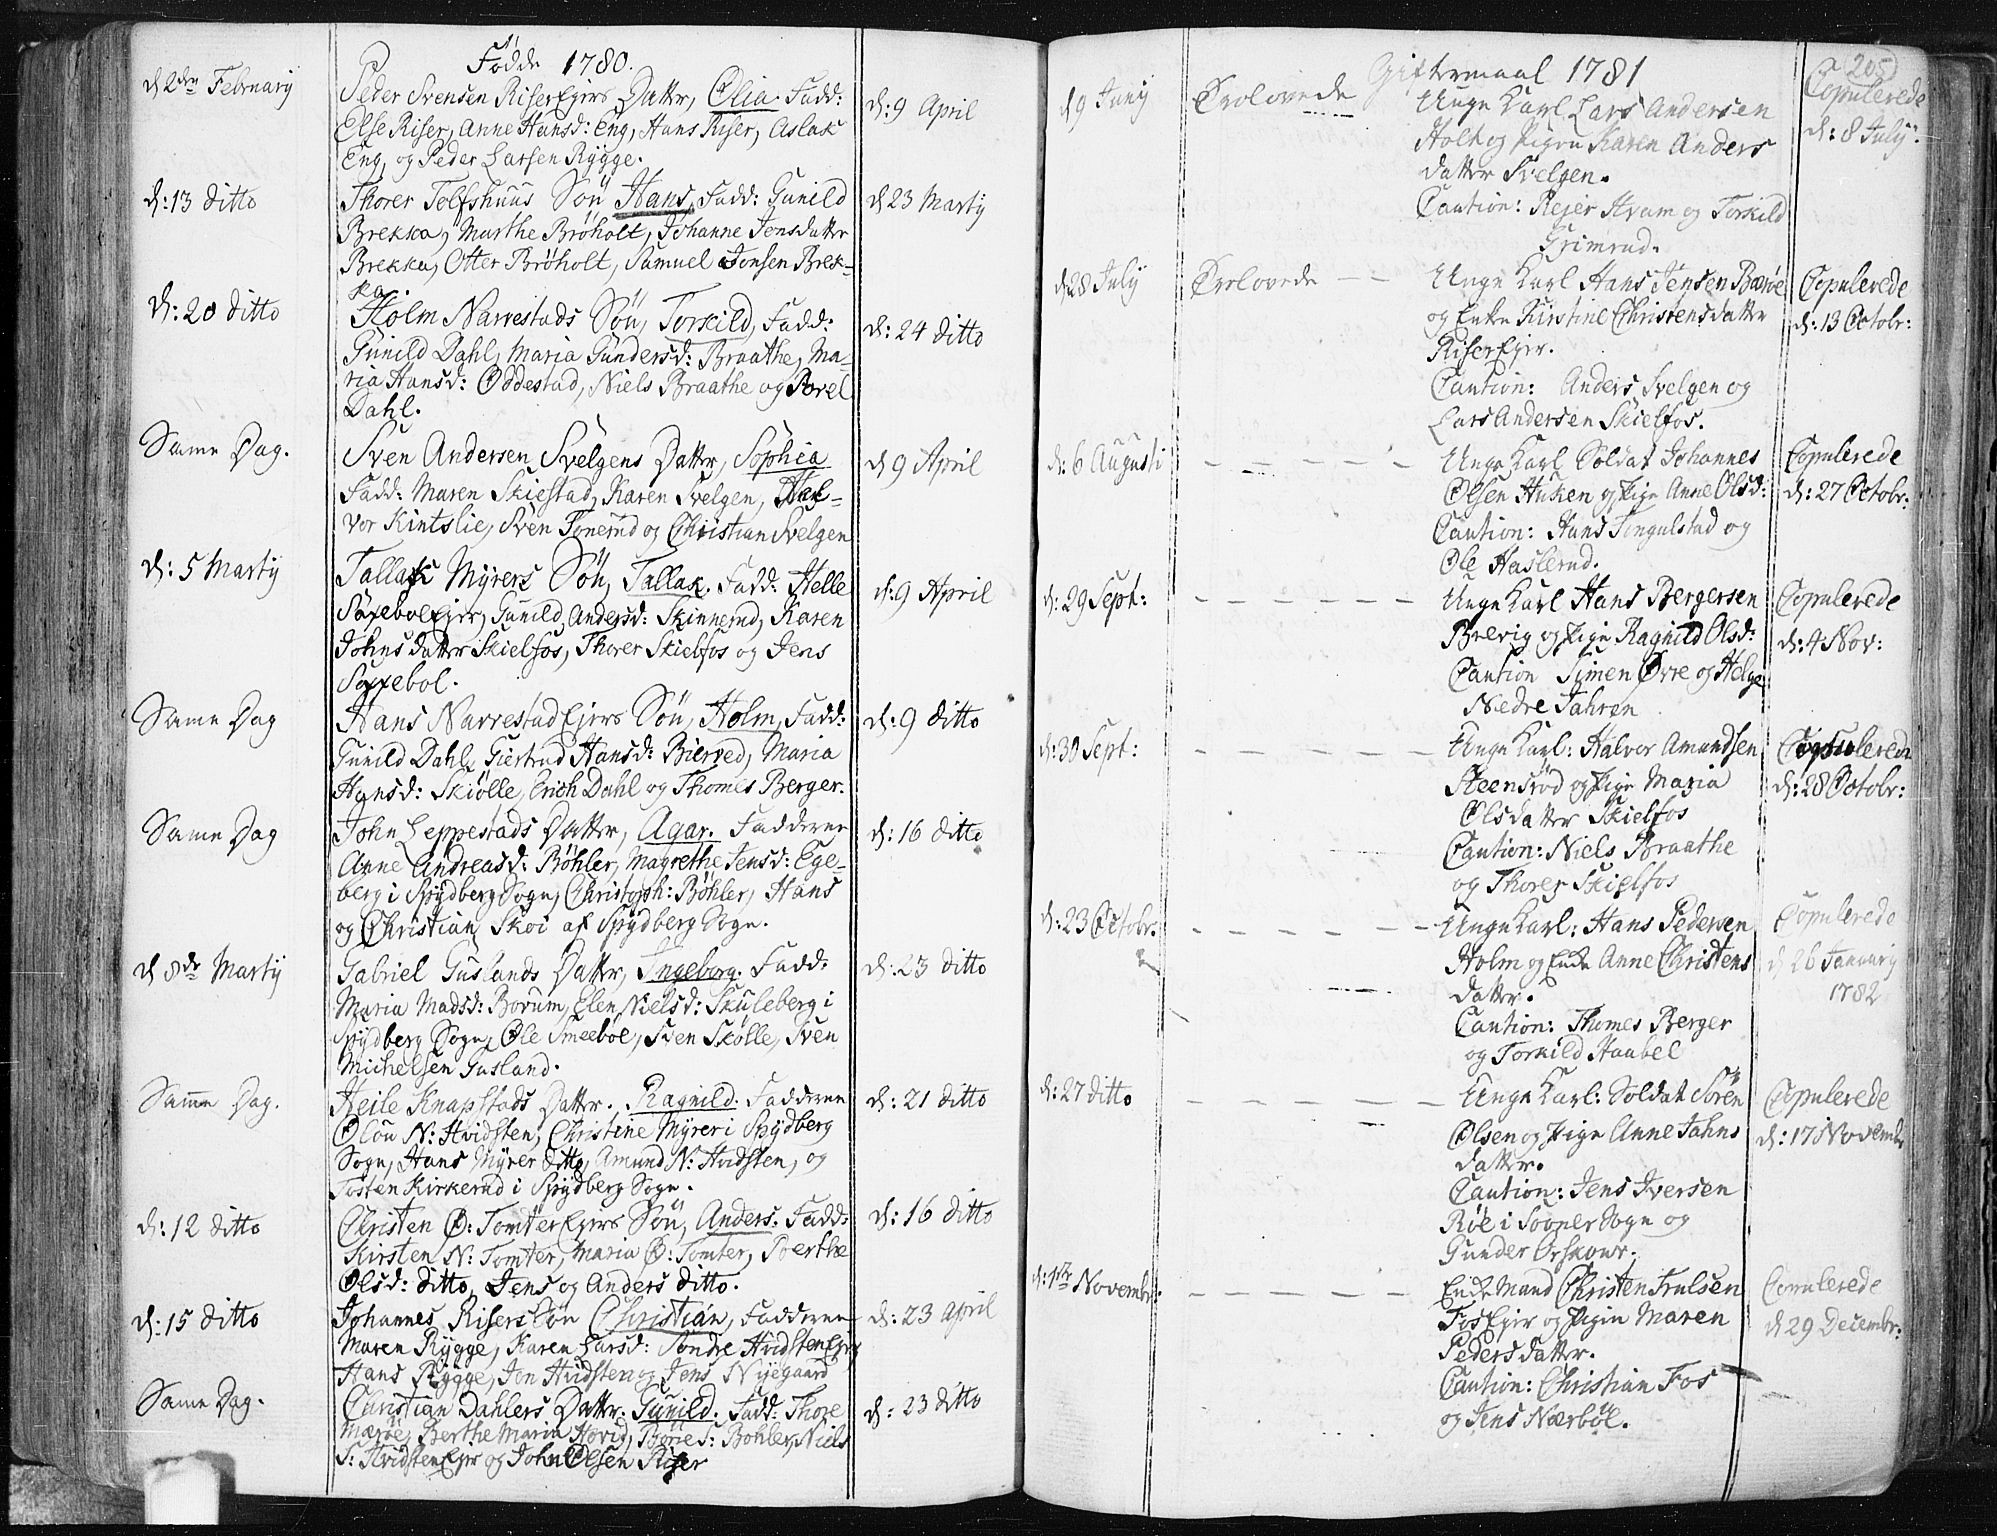 Fødde 1780.
d 2den February
Peder Svensen RiserEjers Datter, Olia. Fadd:
d: 9 April
Else Riser, Anne Hansd: Eng, Hans Riser, Aslak
Eng, og Peder Larsen Rygge.
d: 13 ditto
Thorer Tolfshuus Søn Hans, Fadd: Gunild
d 23 Martij
Brekka, Marthe Brøholt, Johanne Jensdatter
Brekka, Otter Brøholt, Samuel Jonsen Brek-
ka.
d: 20 ditto
Holm Narrestads Søn, Torkild, Fadd:
d: 24 ditto
Gunild Dahl, Maria Gundersd: Braathe, Ma-
ria Hansd: Oddestad, Niels Braathe og Porel
Dahl.
Same Dag.
Sven Andersen Svelgens Datter, Sophia
d 9 April
Fadd: Maren Skiestad, Karen Svelgen, Hal-
vor Kintslie, Sven Tonerud og Christian Svelgen
d: 5 Martij
Tallak Myrers Søn, Tallak. Fadd: Helle
d: 9 April
SaxebolEjer, Gunild Andersd: Skinnerud, Karen
Johns datter Skielfos, Thorer Skielfos og Jens
Saxebol.
Same Dag
Hans NarrestadEjers Søn, Holm, Fadd:
d: 9 ditto
Gunild Dahl, Giertrud Hansd: Bierved, Maria
Hansd: Skiølle, Erich Dahl og Thomes Berger.
Same Dag
John Leppestads Datter, Agar. Fadderne
d: 16 ditto
Anne Andreasd: Bøhler, Magrethe Jensd: Ege-
berg i Spydberg Sogn, Christoph: Bøhler, Hans
og Christian Skoi af Spydberg Sogn.
d 8de Martij
Gabriel Guslands Datter, Ingeborg. Fadd:
d: 23 ditto
Maria Madsd: Borum, Elen Nielsd: Skuleberg i
Spydberg Sogn, Ole Smeeboe, Sven Skølle, Sven
Michelsen Gusland.
Samme Dag.
Heile Knapstads Datter. Ragnild. Fadderne
d: 21 ditto
Oloü N: Hvidsten, Christine Myrer i Spydberg
Sogn, Hans Myrer ditto, Amund N: Hvidsten, og
Tosten Kirkerud i Spydberg Sogn.
d: 12 ditto
Christen Ø: TomterEjers Søn, Anders. Fadd:
d: 16 ditto
Kirsten N: Tomter, Maria Ø: Tomter, Boerthe
Olsd: ditto, Jens og Anders ditto.
d: 15 ditto
Johannes Risers Søn Christian, Fadderne
d: 23 April
Maren Rygge, Karen Larsd: Søndre HvidstenEjer
Hans Rygge, Jon Hvidsten og Jens Nyegaard
Same Dag.
Christian Dahlers Datter. Gunild. Fadd: Thore
d: 23 ditto
Mærøe, Berthe Maria Hovid, Børre S: Bøhler, Niels
S: HvidstenEjer og John Olsen Riser
Giftermaal 1781
205
d 9 Junij
Trolovede
Unge Karl Lars Andersen
Copulerede
Holt og Pigen Karen Anders
d: 8 July:
datter Svelgen.
Caution: Rejer Hvam og Torkild
Grimrud.
d 28 July
Trolovede — —
Unge Karl Hans Jensen Bærøe
Copulerede
og Enke Kirstine Christensdatter
d: 13 Octobr:
RiserEjer.
Caution: Anders Svelgen og
Lars Andersen Skielfos.
d: 6 Augusti — — — — —
Unge Karl Soldat Johannes
Copulerede
Olsen Huken og Pige Anne Olsd:
d: 27 Octobr:
Caution: Hans Tingulstad og
Ole Haslerud.
d: 29 Sept: — — — — — —
Unge Karl Hans Bergersen
Copulerede
Brevig og Pige Ragnild Olsd:
d: 4 Nov:
Caution Simen Øvre og Helge
Nedre Jahren
d: 30 Sept: — — — — — —
Unge Karl: Halvor Amundsen
Copulerede
Steensrød og Pige Maria
d: 28 Octobr:
Olsdatter Skielfos
Caution: Niels Braathe
og Thorer Skielfos
d: 23 Octobr: — — — — — —
Unge Karl: Hans Pedersen
Copulerede
Holm og Enke Anne Christens
d 26 January
datter.
1782
Caution: Thomes Berger
og Torkild Haabel
d: 27 ditto — — — — — —
Unge Karl: Soldat Søren
Copulerede
Olsen og Pige Anne Jahns
d: 17 Novembr
datter.
Caution: Jens Iversen
Røe i Sovner Sogn og
Gunder Orskour.
d: 1ste Novembr: — — — — —
Enke Mand Christen Trulsen
Copulerede
FosEjer og Pigen Maren
d 29 Decembr:
Peders datter.
Caution: Christian Fos
og Jens Nærbøl.